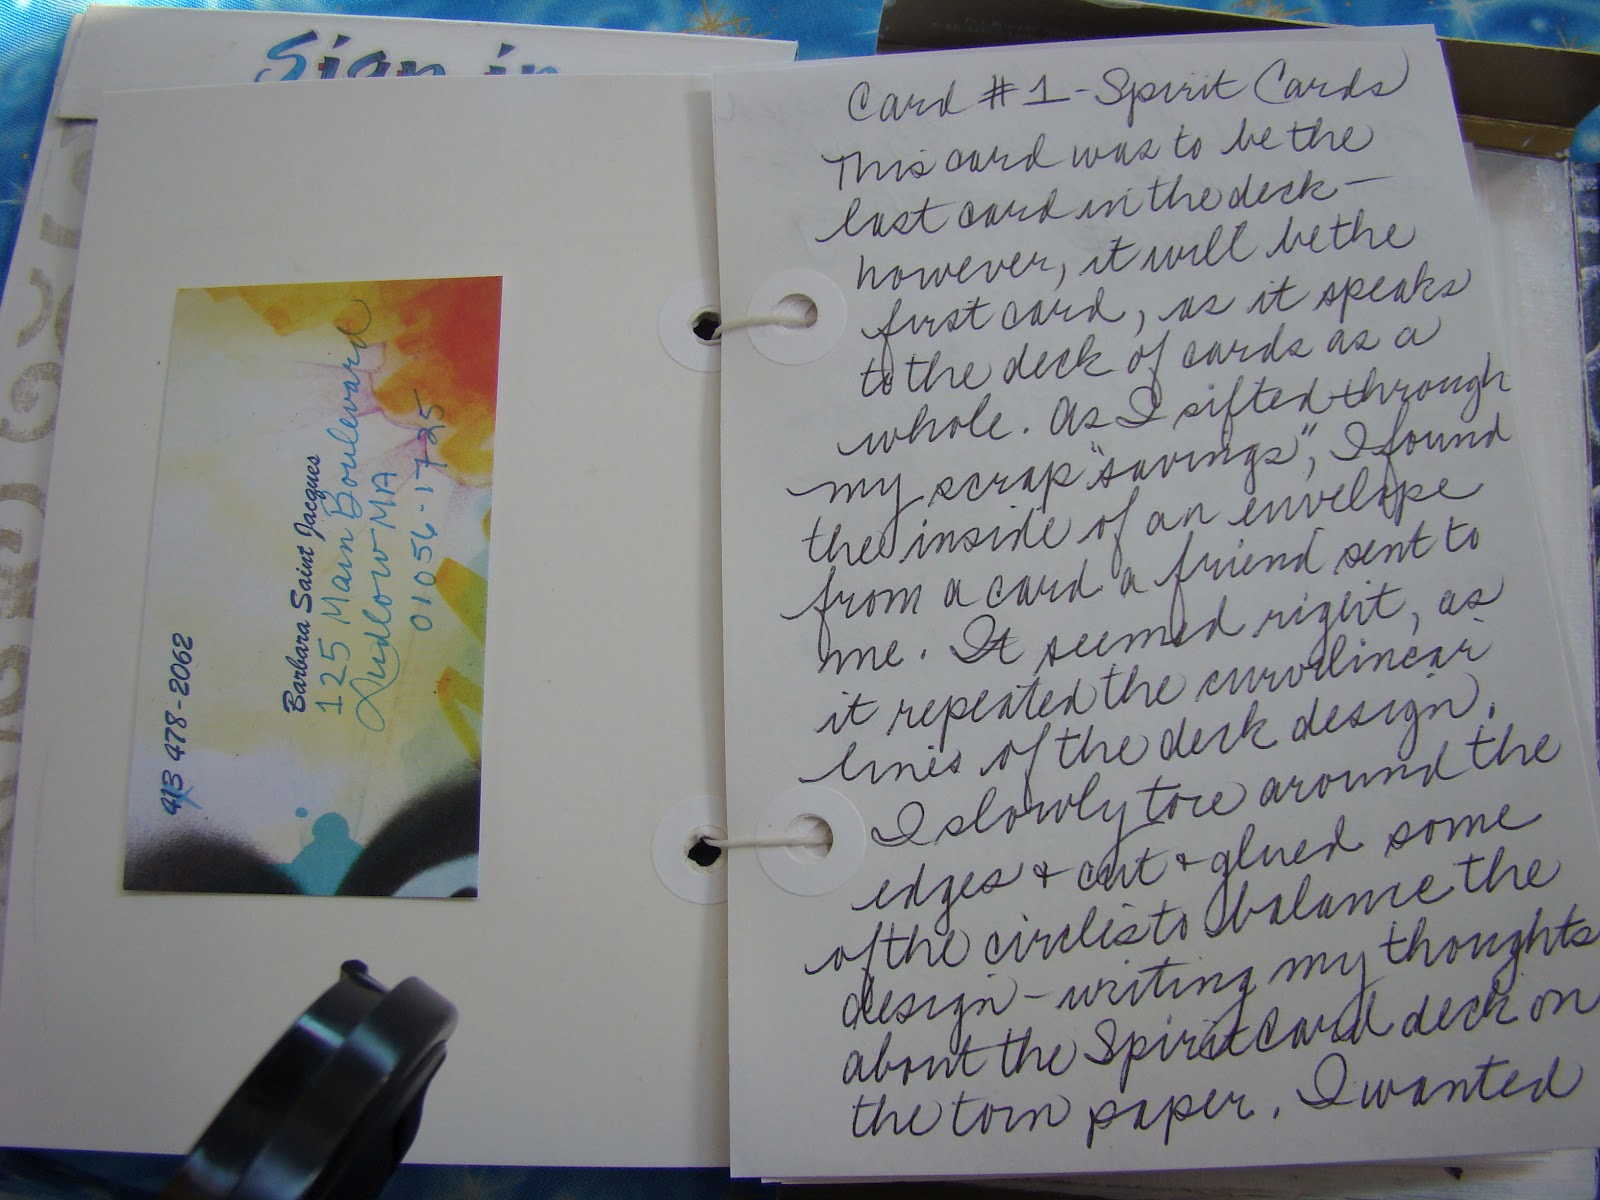 Sign in
413 478-2062
Barbara Saint Jacques
125 Main Boulevard
Ludlow MA
01056-1725
Card #1-Spirit Cards
This card was to be the
last card in the deck—
however, it will be the
first card, as it speaks
to the deck of cards as a
whole. As I sifted through
my scrap "savings", I found
the inside of an envelope
from a card a friend sent to
me. It seemed right, as
it repeated the curvilinear
lines of the deck design.
I slowly tore around the
edges + cut + glued some
of the circles to balance the
design - writing my thoughts
about the Spirit Card deck on
the torn paper. I wanted